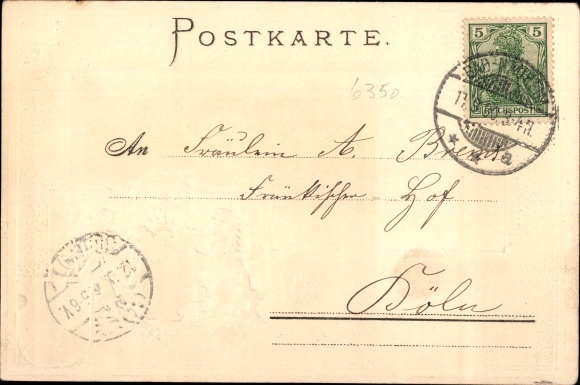 POSTKARTE.
6350
5 5
REICHSPOST
An Fräulein A. Brendt
Fränkischer Hof
Köln